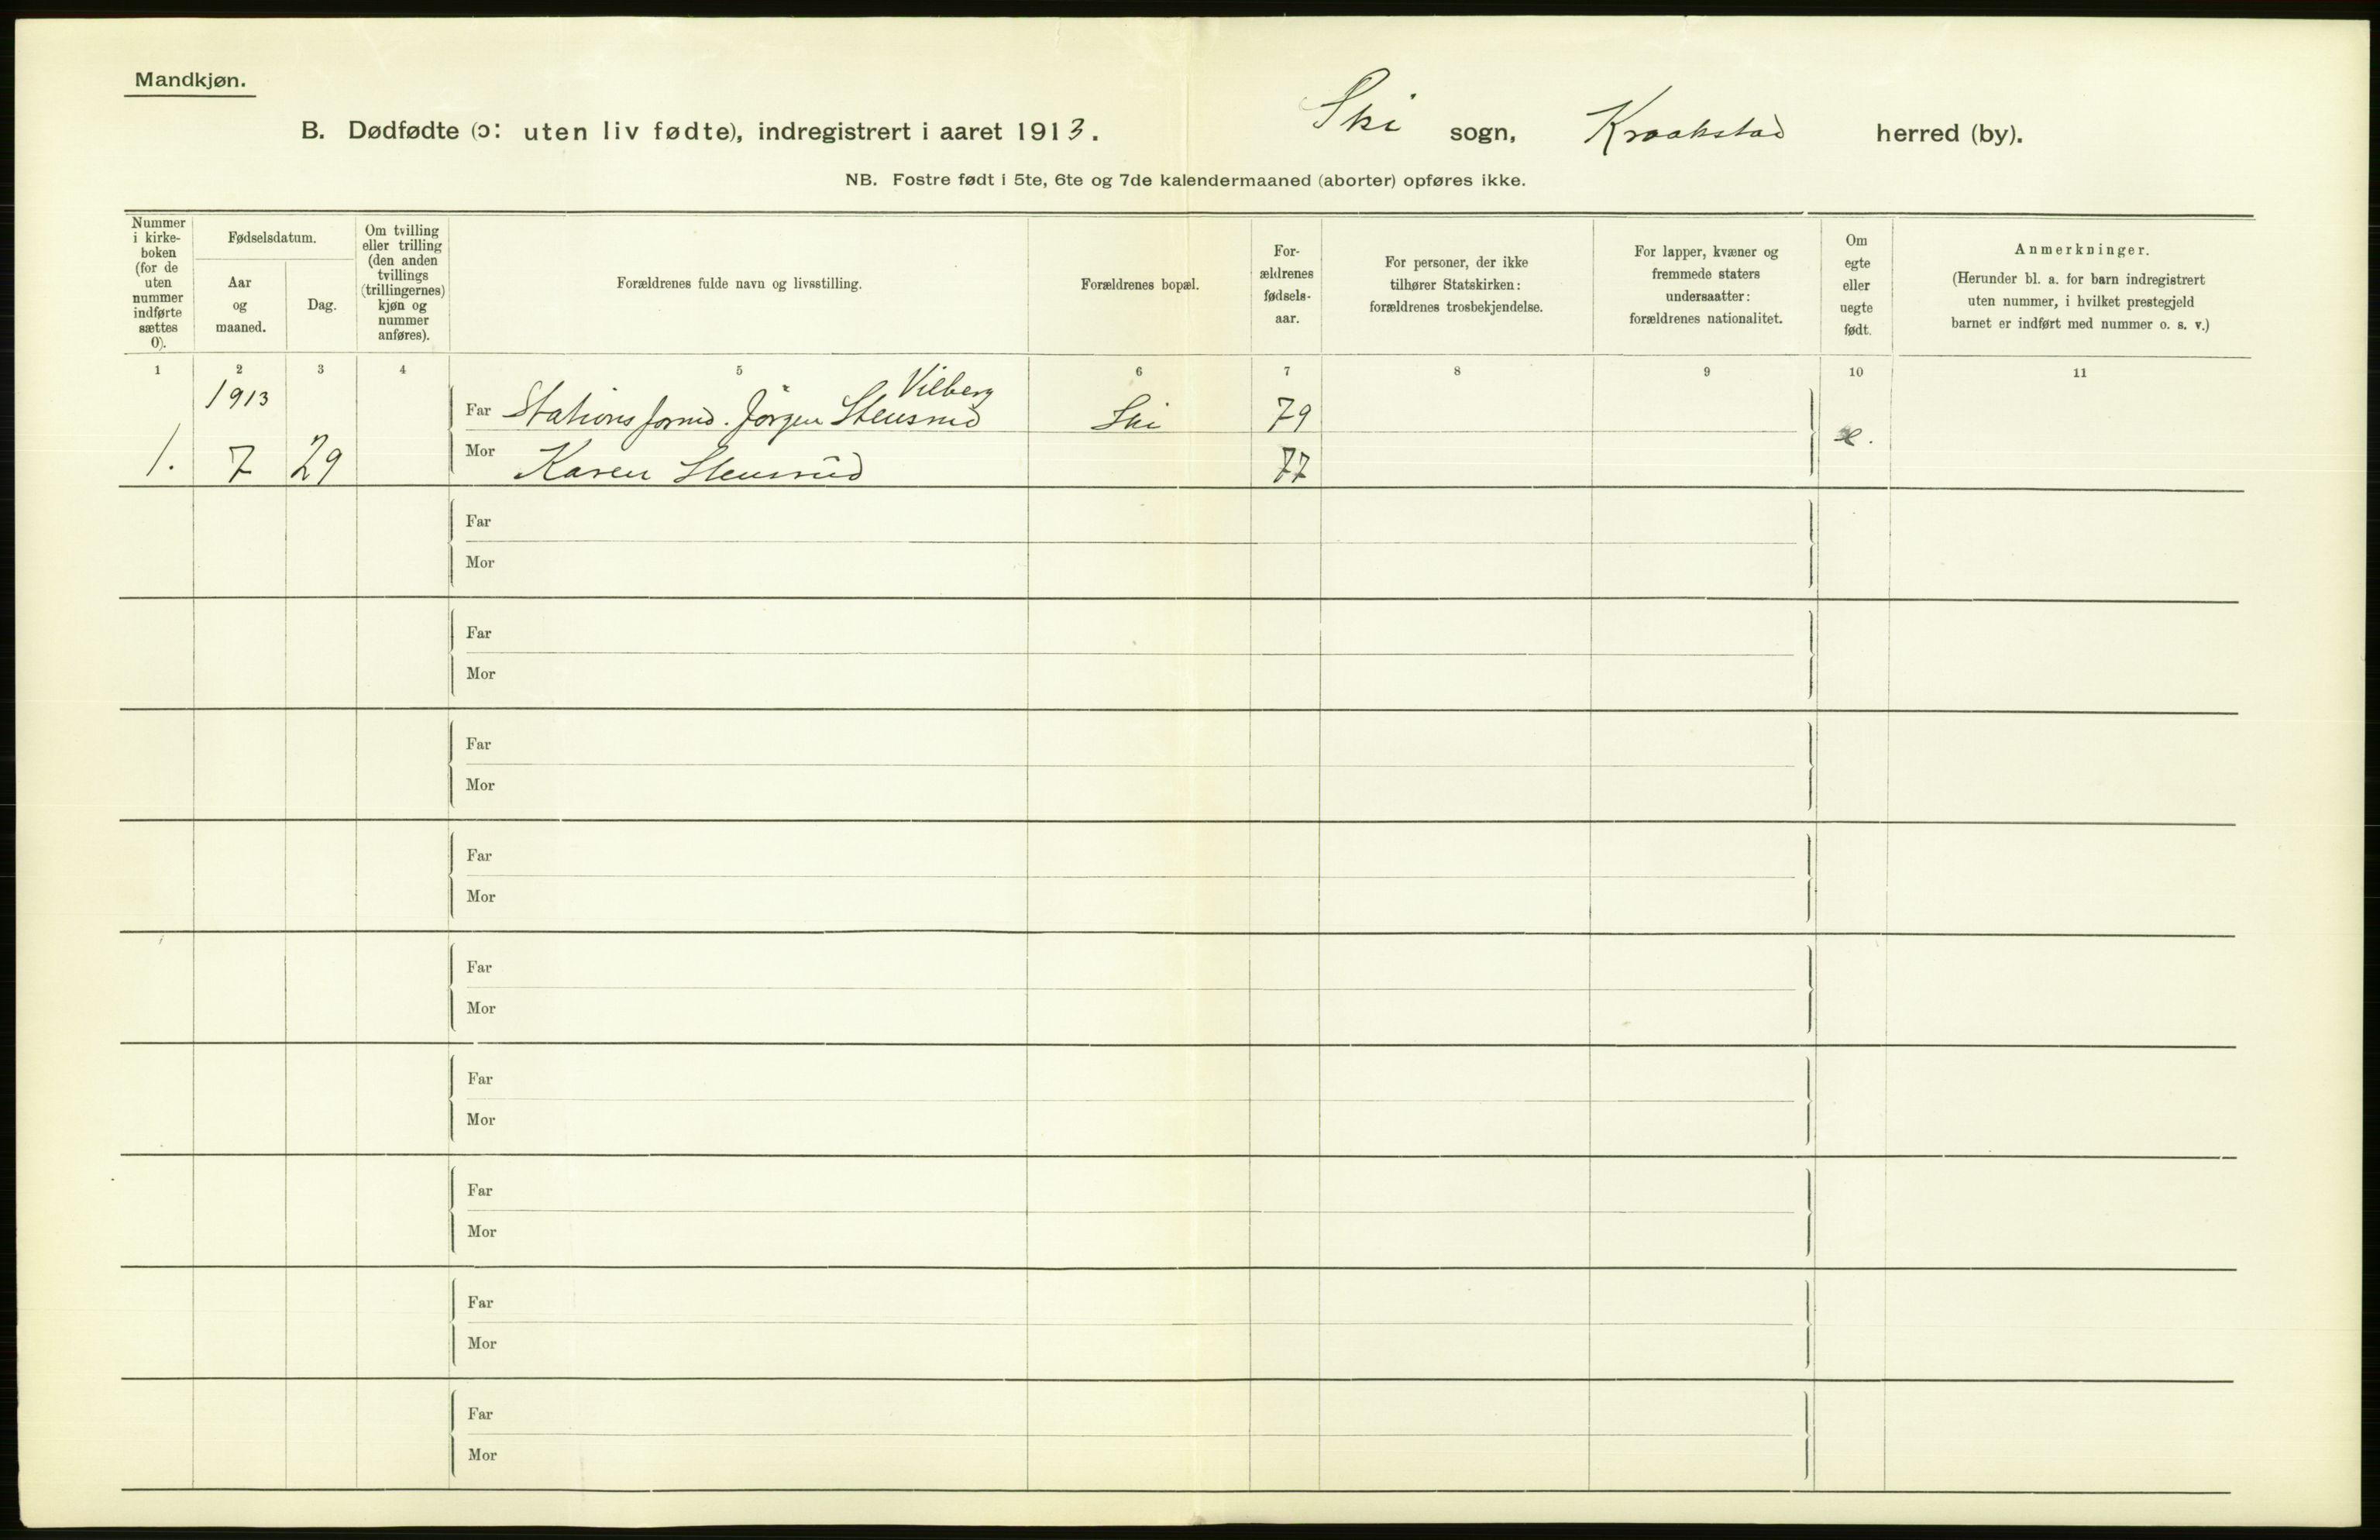 Mandkjøn.
B. Dødfødte (ɔ: uten liv fødte), indregistrert i aaret 1913. Ski sogn, Kraakstad herred (by).
NB. Fostre født i 5te, 6te og 7de kalendermaaned (aborter) opføres ikke.
Nummer
i kirke-
boken
(for de
uten
nummer
indførte
sættes
0).
Fødselsdatum.
Aar
og
maaned.
Dag.
Om tvilling
eller trilling
(den anden
tvillings
(trillingernes)
kjøn og
nummer
anføres).
Forældrenes fulde navn og livsstilling.
Forældrenes bopæl.
For-
ældrenes
fødsels-
aar.
For personer, der ikke
tilhører Statskirken:
forældrenes trosbekjendelse.
For lapper, kvæner og
fremmede staters
undersaatter:
forældrenes nationalitet.
Om
egte
eller
uegte
født.
Anmerkninger.
(Herunder bl. a. for barn indregistrert
uten nummer, i hvilket prestegjeld
barnet er indført med nummer o. s. v.)
1 2 3 4 5 6 7 8 9 10 11
1913
Vilberg
Far Stationsformd. Jörgen Stensrud Ski 79
e.
1. 7 29 Mor Karen Stensrud 77
Far
Mor
Far
Mor
Far
Mor
Far
Mor
Far
Mor
Far
Mor
Far
Mor
Far
Mor
Far
Mor